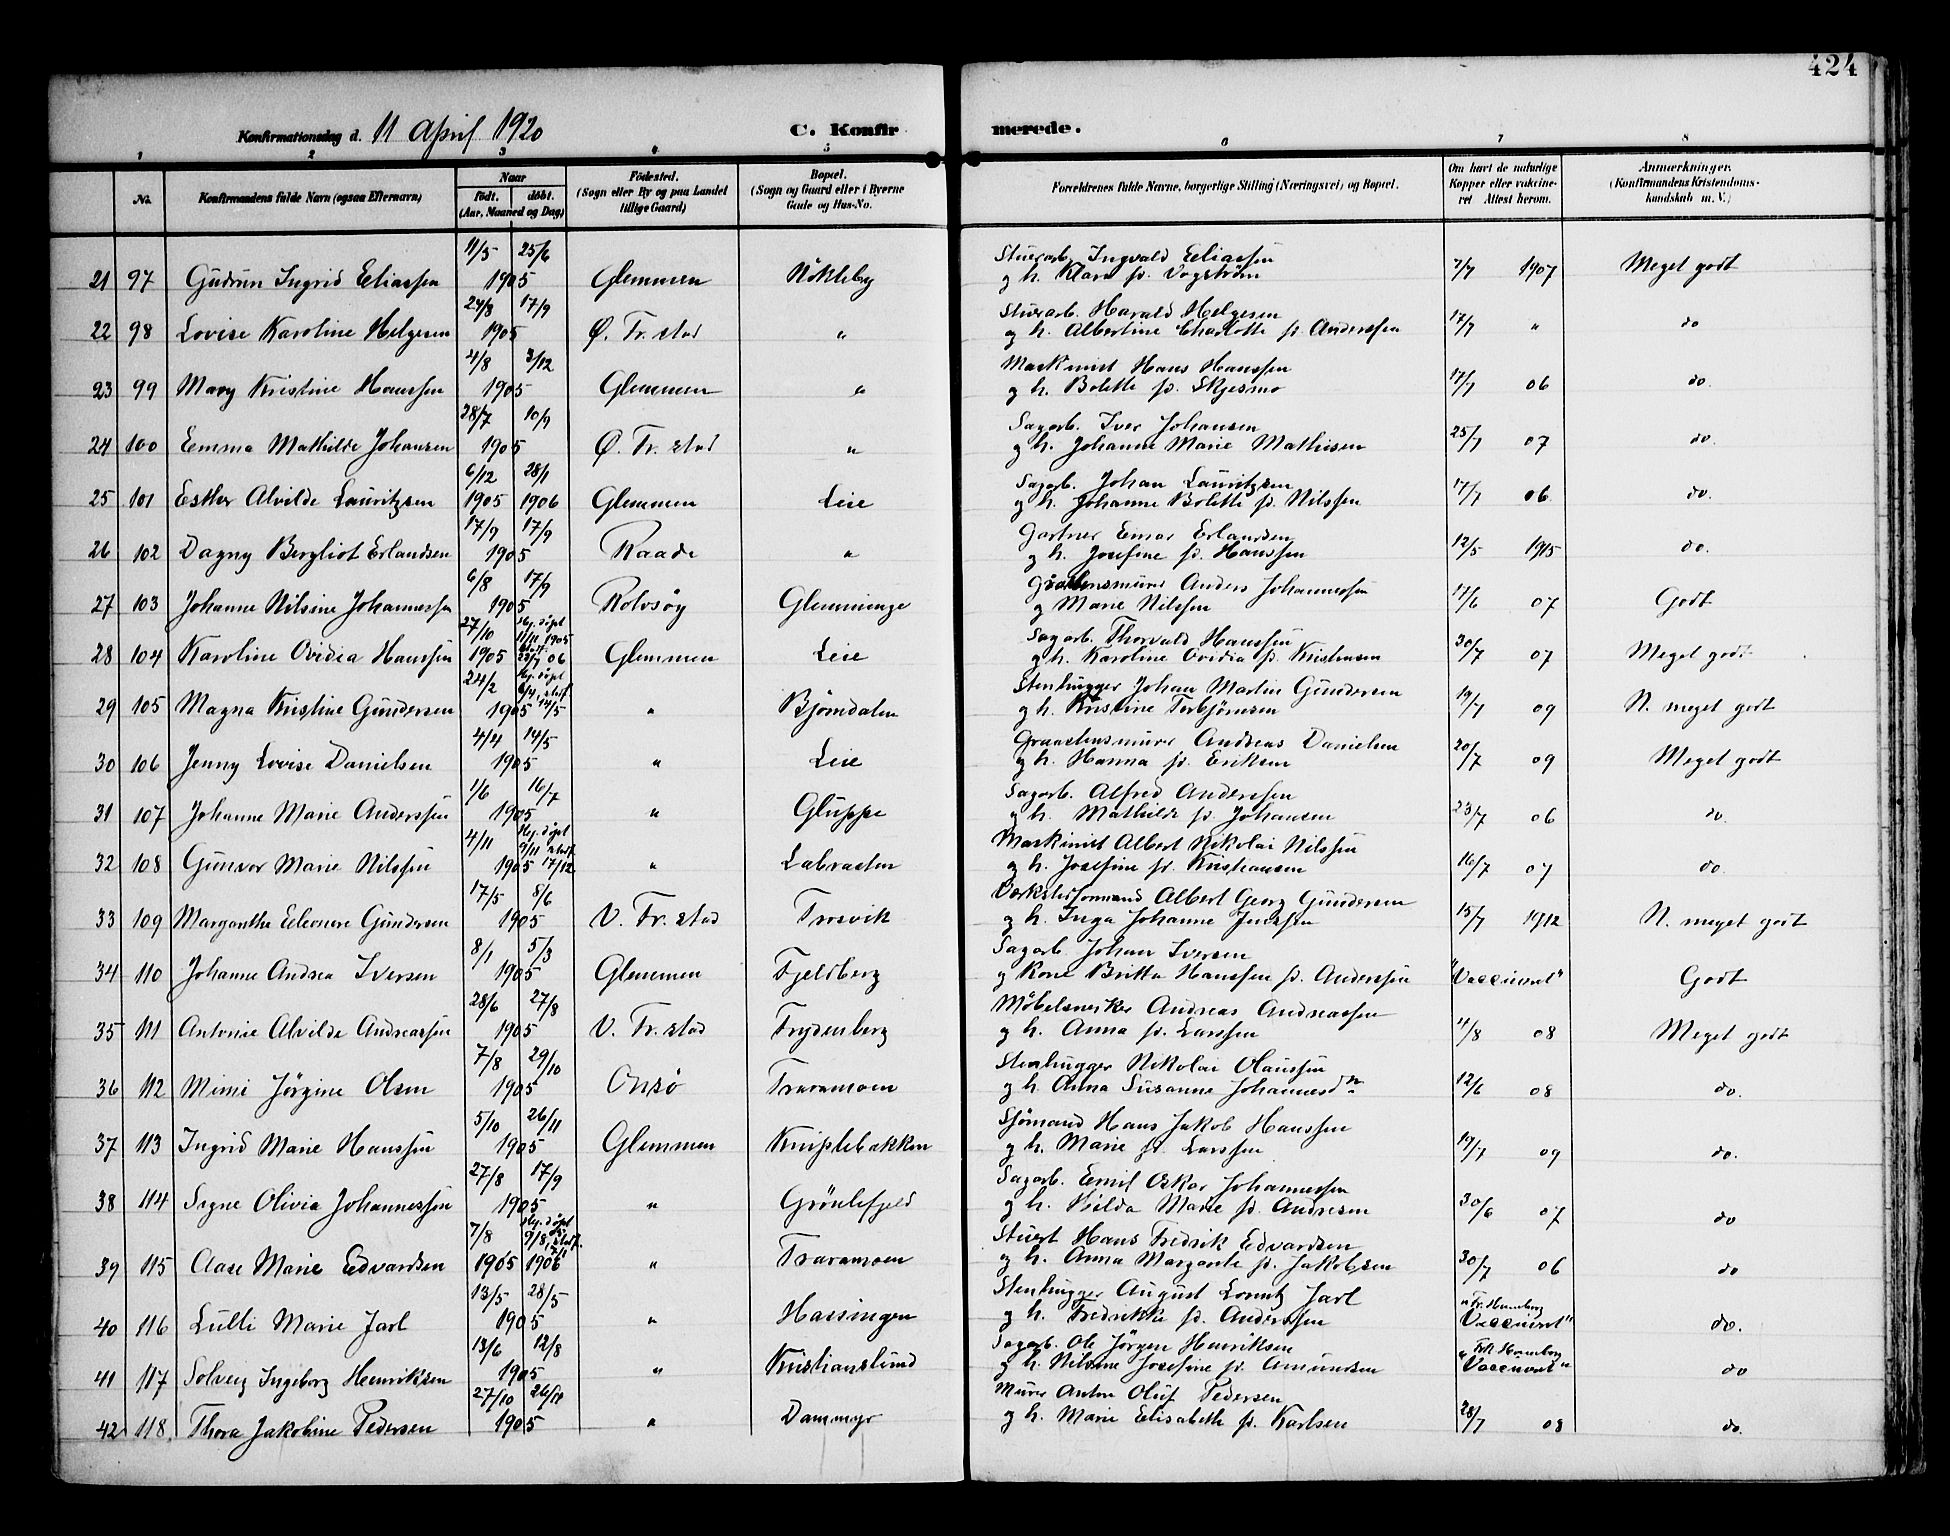 424
Konfirmationsdag d. 11 April 1920 C. Konfirmerede.
1 2 3 4 5 6 7 8
No. Konfirmandens fulde Navn (ogsaa Efternavn) Naar födt. döbt. (Aar, Maaned og Dag) Födested. (Sogn eller By og paa Landet tillige Gaard) Bopæl. (Sogn og Gaard eller i Byerne Gade og Hus-No. Forældrenes fulde Navne, borgerlige Stilling (Næringsvei) og Bopæl. Om havt de naturlige Kopper eller vaccineret Attest herom. Anmærkninger. (Konfirmandens Kristendomskundskab m. V.)
11/5 25/6 Stuerarb. Ingvald Eliassen
21 97 Gudrun Ingrid Eliassen 1905 Glemmen Nökleby og h. Klara f. Vogström 7/7 1907 Meget godt
24/8 17/9 Stuerarb. Harald Helgesen
22 98 Lovise Karoline Helgesen 1905 Ø. Fr.stad " og h. Albertine Charlotte f. Anderssen 17/7 " do
4/8 3/12 Maskinist Hans Hanssen
23 99 Mary Kristine Hanssen 1905 Glemmen " og h. Bolette f. Skjesmo 17/7 06 do.
28/7 10/9 Sagarb. Iver Johansen
24 100 Emma Mathilde Johansen 1905 Ø. Fr.stad " og h. Johanne Marie Mathisen 25/7 07 do.
6/12 28/1 Sagarb. Johan Lauritzsen
25 101 Esther Alvilde Lauritzsen 1905 1906 Glemmen Leie og h. Johanne Bolette f. Nilssen 17/7 06. do.
17/7 17/9 Gartner Einar Erlandsen
26 102 Dagny Bergliot Erlandsen 1905 Raade " og h. Josefine f. Hanssen 12/5 1915 do.
6/8 17/9 Anders Johannessen
27 103 Johanne Nilsine Johannessen 1905 Rolvsøy Glemminge og Marie Nilssen 17/6 07 Godt
27/10 Hj. döpt 11/11 1905 Sagarb. Thorvald Hanssen
28 104 Karoline Ovidia Hanssen 1905 06 Glemmen Leie og h. Karoline Ovidia f. Kristensen 30/7 07 Meget godt
24/2 Hj. döpt 6/4, stadf. 14/5 Stenhugger Johan Martin Gundersen
29 105 Magna Kristine Gundersen 1905 " Bjørndalen og h. Kristine Torbjörnsen 19/7 09 N. meget godt
4/4 14/5 Graastensmurer Andreas Danielsen
30 106 Jenny Lovise Danielsen 1905 " Leie og h. Hanna f. Eriksen 20/7 09 Meget godt
1/6 16/7 Sagarb. Alfred Anderssen
31 107 Johanne Marie Anderssen 1905 " Gluppe og h. Mathilde f. Johansen 23/7 06 do.
4/11 Hj. döpt 9/11 stadf. 17/12 Maskinist Albert Nikolai Nilssen
32 108 Gunvor Marie Nilssen 1905 " Labrasten og h. Josefine f. Kristiansen 16/7 07 do.
17/5 8/6 Værkstedsformand Albert Georg Gundersen
33 109 Margrethe Eleonore Gundersen 1905 V. Fr.stad Trosvik og h. Inga Johanne Jenssen 15/7 1912 N. meget godt
8/1 5/3 Sagarb. Johan Iversen
34 110 Johanne Andrea Iversen 1905 Glemmen Fjeldberg og Kone Britta Hanssen f. Anderssen "Vaccineret" Godt
28/6 27/8 Möbelsnekker Andreas Andreassen
35 111 Antonie Alvilde Andreassen 1905 V. Fr.stad Frydenberg og h. Anna f. Larssen 4/8 08 Meget godt
7/8 29/10 Stenhugger Nikolai Olaussen
36 112 Mimi Jörgine Olsen 1905 Onsö Traramoen og h. Anna Susanne Johannesdr 12/6 08 do.
5/10 26/11 Sjömand Hans Jakob Hanssen
37 113 Ingrid Marie Hanssen 1905 Glemmen Kniplebakken og h. Marie f. Larssen 19/7 09 do.
27/8 17/9 Sagarb. Emil Oskar Johannessen
38 114 Signe Olivia Johannessen 1905 " Grönlifjeld og h. Hilda Marie f. Andresen 30/6 07 do
7/8 Hj. döpt 9/8, stadf. Stuert Hans Fredrik Edvardsen
39 115 Aase Marie Edvardsen 1905 1906 " Traramoen og h. Anna Margrete f. Jakobsen 30/7 06 do
13/5 28/5 Stenhugger August Lorentz Jarl
40 116 Lulli Marie Jarl 1905 " Hassingen og h. Fredrikke f. Anderssen "Fr. Homberg Vaccineret" do.
13/6 12/8 Sagarb. Ole Jörgen Henriksen
41 117 Solveig Ingeborg Henriksen 1905 " Kristianslund og h. Nilsine Josefine f. Amundsen "Frk. Homberg Vaccineret" do
27/10 26/11 Murer Anton Oluf Pedersen
42 118. Thora Jakobine Pedersen 1905 " Dammyr og h. Marie Elisabeth f. Karlsen 28/7 08 do.